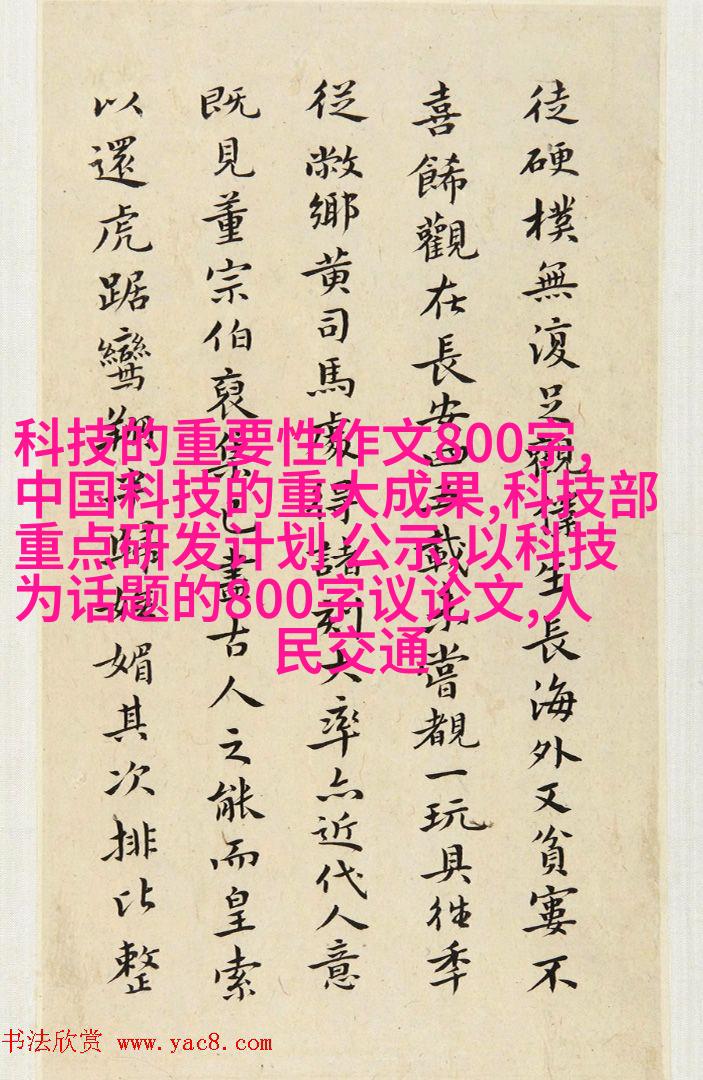 徒硬樸無復足觀僕生長海外又貧寠不
喜餙觀在長安四五載未嘗覩一玩具徃季
從敝鄉黃司馬處得諸刻大率亦近代人意
既見董宗伯裒集已盡古人之能而皇索
以還虎踞鸞翔歸媚其次排比整
科技的重要性作文800字,
中国科技的重大成果,科技部
重点研发计划 公示,以科技
为话题的800字议论文,人
民交通
书法欣赏 www.yac8.com